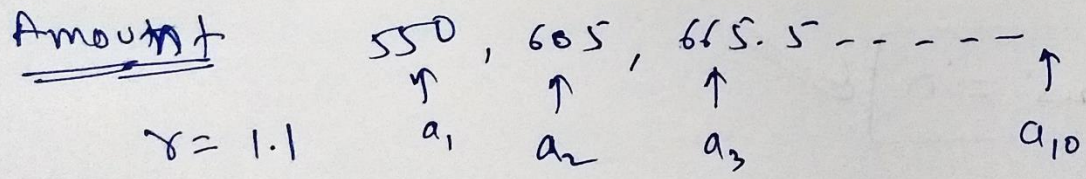 Amount 550, 605, 665.5 -----
↑ ↑ ↑ ↑
r = 1.1 a₁ a₂ a₃ a₁₀